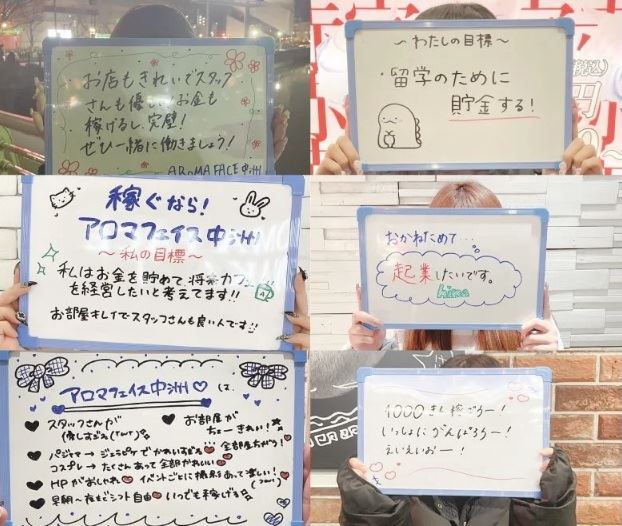 お店もきれいでスタッフ
さんも優しい！お金も
稼げるし、完璧！
ぜひ一緒に働きましょう！
AROMA FACE 中洲
〜わたしの目標〜
・留学のために
貯金する！
稼ぐなら！
アロマフェイス中洲
〜私の目標〜
私はお金を貯めて、将来カフェ
を経営したいと考えてます!!
お部屋キレイでスタッフさんも良い人です!!
おかねためて...
起業したいです。
hina
アロマフェイス中洲♡は、
♥スタッフさんが
優しすぎる
♥お部屋が
ちょーきれい！
♥パジャマ→ジェラピケでかわいすぎる 全部屋ちがう！
コスプレ→たくさんあって全部かわいい
♥HPがおしゃれ イベントごとに撮影あって楽しい！
♥早朝〜夜までシフト自由 いつでも稼げる
1000まん稼ごうー！
いっしょにがんばろうー！
えいえいおー！